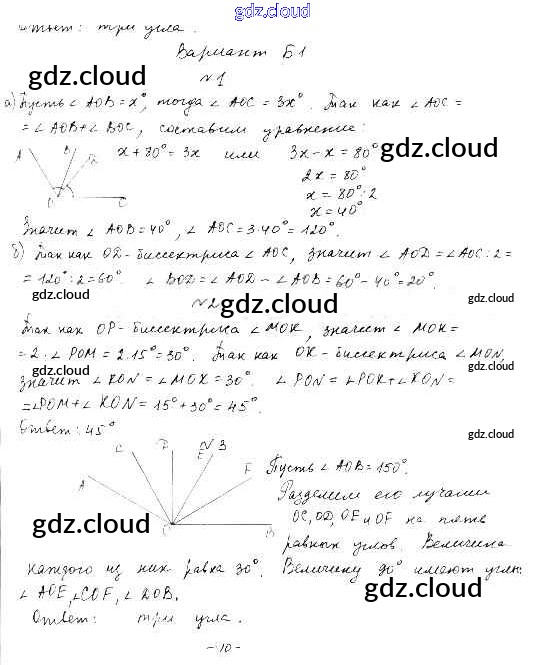 gdz.cloud
Ответ: три угла.
Вариант Б1
gdz.cloud
№1
а) Пусть ∠ AOB = x°, тогда ∠ AOC = 3x°. Так как ∠ AOC =
= ∠ AOB + ∠ BOC, составим уравнение:
A B D x + 80° = 3x или 3x - x = 80° gdz.cloud
2x = 80°
O C x = 80° : 2
x = 40°
Значит ∠ AOB = 40°, ∠ AOC = 3·40° = 120°.
gdz.cloud
б) Так как OD - биссектриса ∠ AOC, значит ∠ AOD = ∠ AOC : 2 =
= 120° : 2 = 60°. ∠ BOD = ∠ AOD - ∠ AOB = 60° - 40° = 20°.
gdz.cloud gdz.cloud
№2 gdz.cloud
Так как OP - биссектриса ∠ MOK, значит ∠ MOK =
= 2 · ∠ POM = 2·15° = 30°. Так как OK - биссектриса ∠ MON,
gdz.cloud gdz.cloud
значит ∠ KON = ∠ MOK = 30°. ∠ PON = ∠ POK + ∠ KON =
= ∠ POM + ∠ KON = 15° + 30° = 45°.
Ответ: 45° gdz.cloud
№3
C D E
A F Пусть ∠ AOB = 150°.
Разделим его лучами
gdz.cloud O B OC, OD, OE и OF на пять
равных углов. Величина
каждого из них равна 30°. Величину 90° имеют углы:
gdz.cloud
∠ AOE, ∠ COF, ∠ DOB.
Ответ: три угла. gdz.cloud
- 40 -